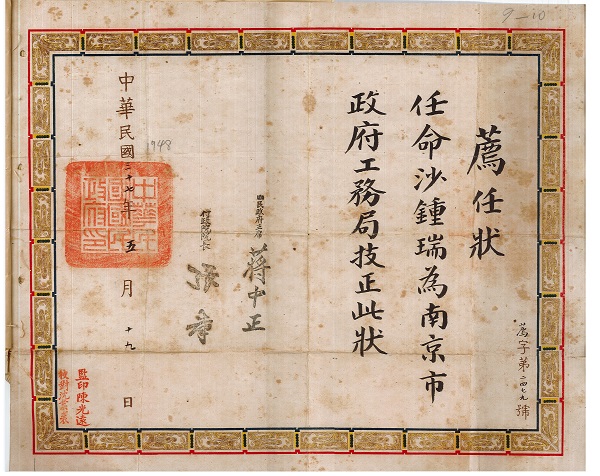 9-10
薦任狀
任命沙鍾瑞為南京市
政府工務局技正此狀
國民政府主席 蔣中正
行政院院長 張羣
中華民國三十七年五月十九日
1948
中華民國國民政府印
薦字第二四七九號
監印陳光遠
校對沈